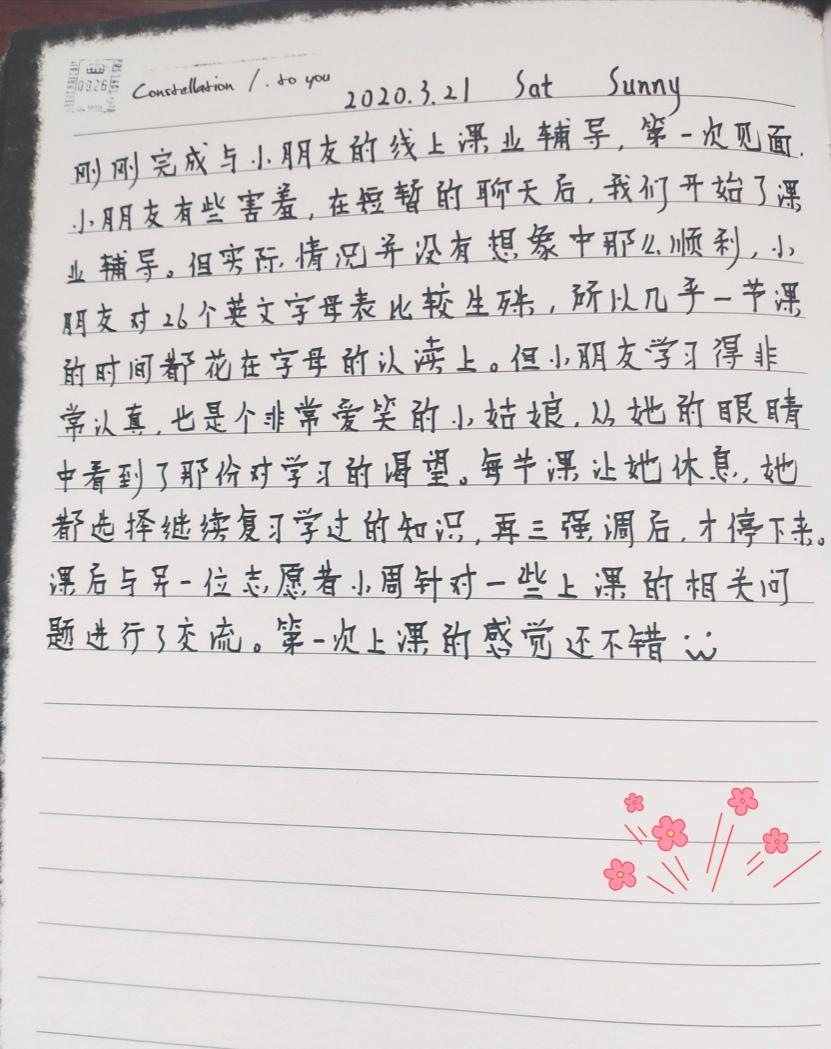 0026
Constellation /. to you
2020.3.21 Sat Sunny
刚刚完成与小朋友的线上课业辅导，第一次见面，
小朋友有些害羞，在短暂的聊天后，我们开始了课
业辅导。但实际情况并没有想象中那么顺利，小
朋友对26个英文字母表比较生殊，所以几乎一节课
的时间都花在字母的认读上。但小朋友学习得非
常认真，也是个非常爱笑的小姑娘，从她的眼睛
中看到了那份对学习的渴望。每节课让她休息，她
都选择继续复习学过的知识，再三强调后，才停下来。
课后与另一位志愿者小周针对一些上课的相关问
题进行了交流。第一次上课的感觉还不错